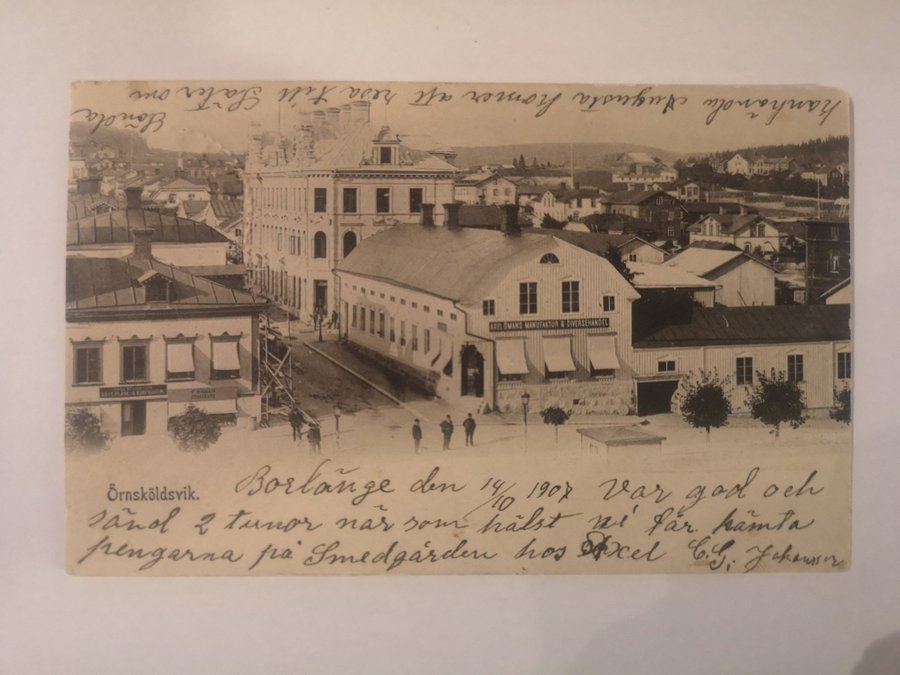 kanhända Augusta komer att resa till Säter om
Sönda
MANUFAKTUR & DIVERSEHANDEL
Örnsköldsvik.
Borlänge den 14/10 1907 Var god och
sänd 2 tunor när som hälst ni får hämta
pengarna på Smedgården hos Axel C.G. Johansson